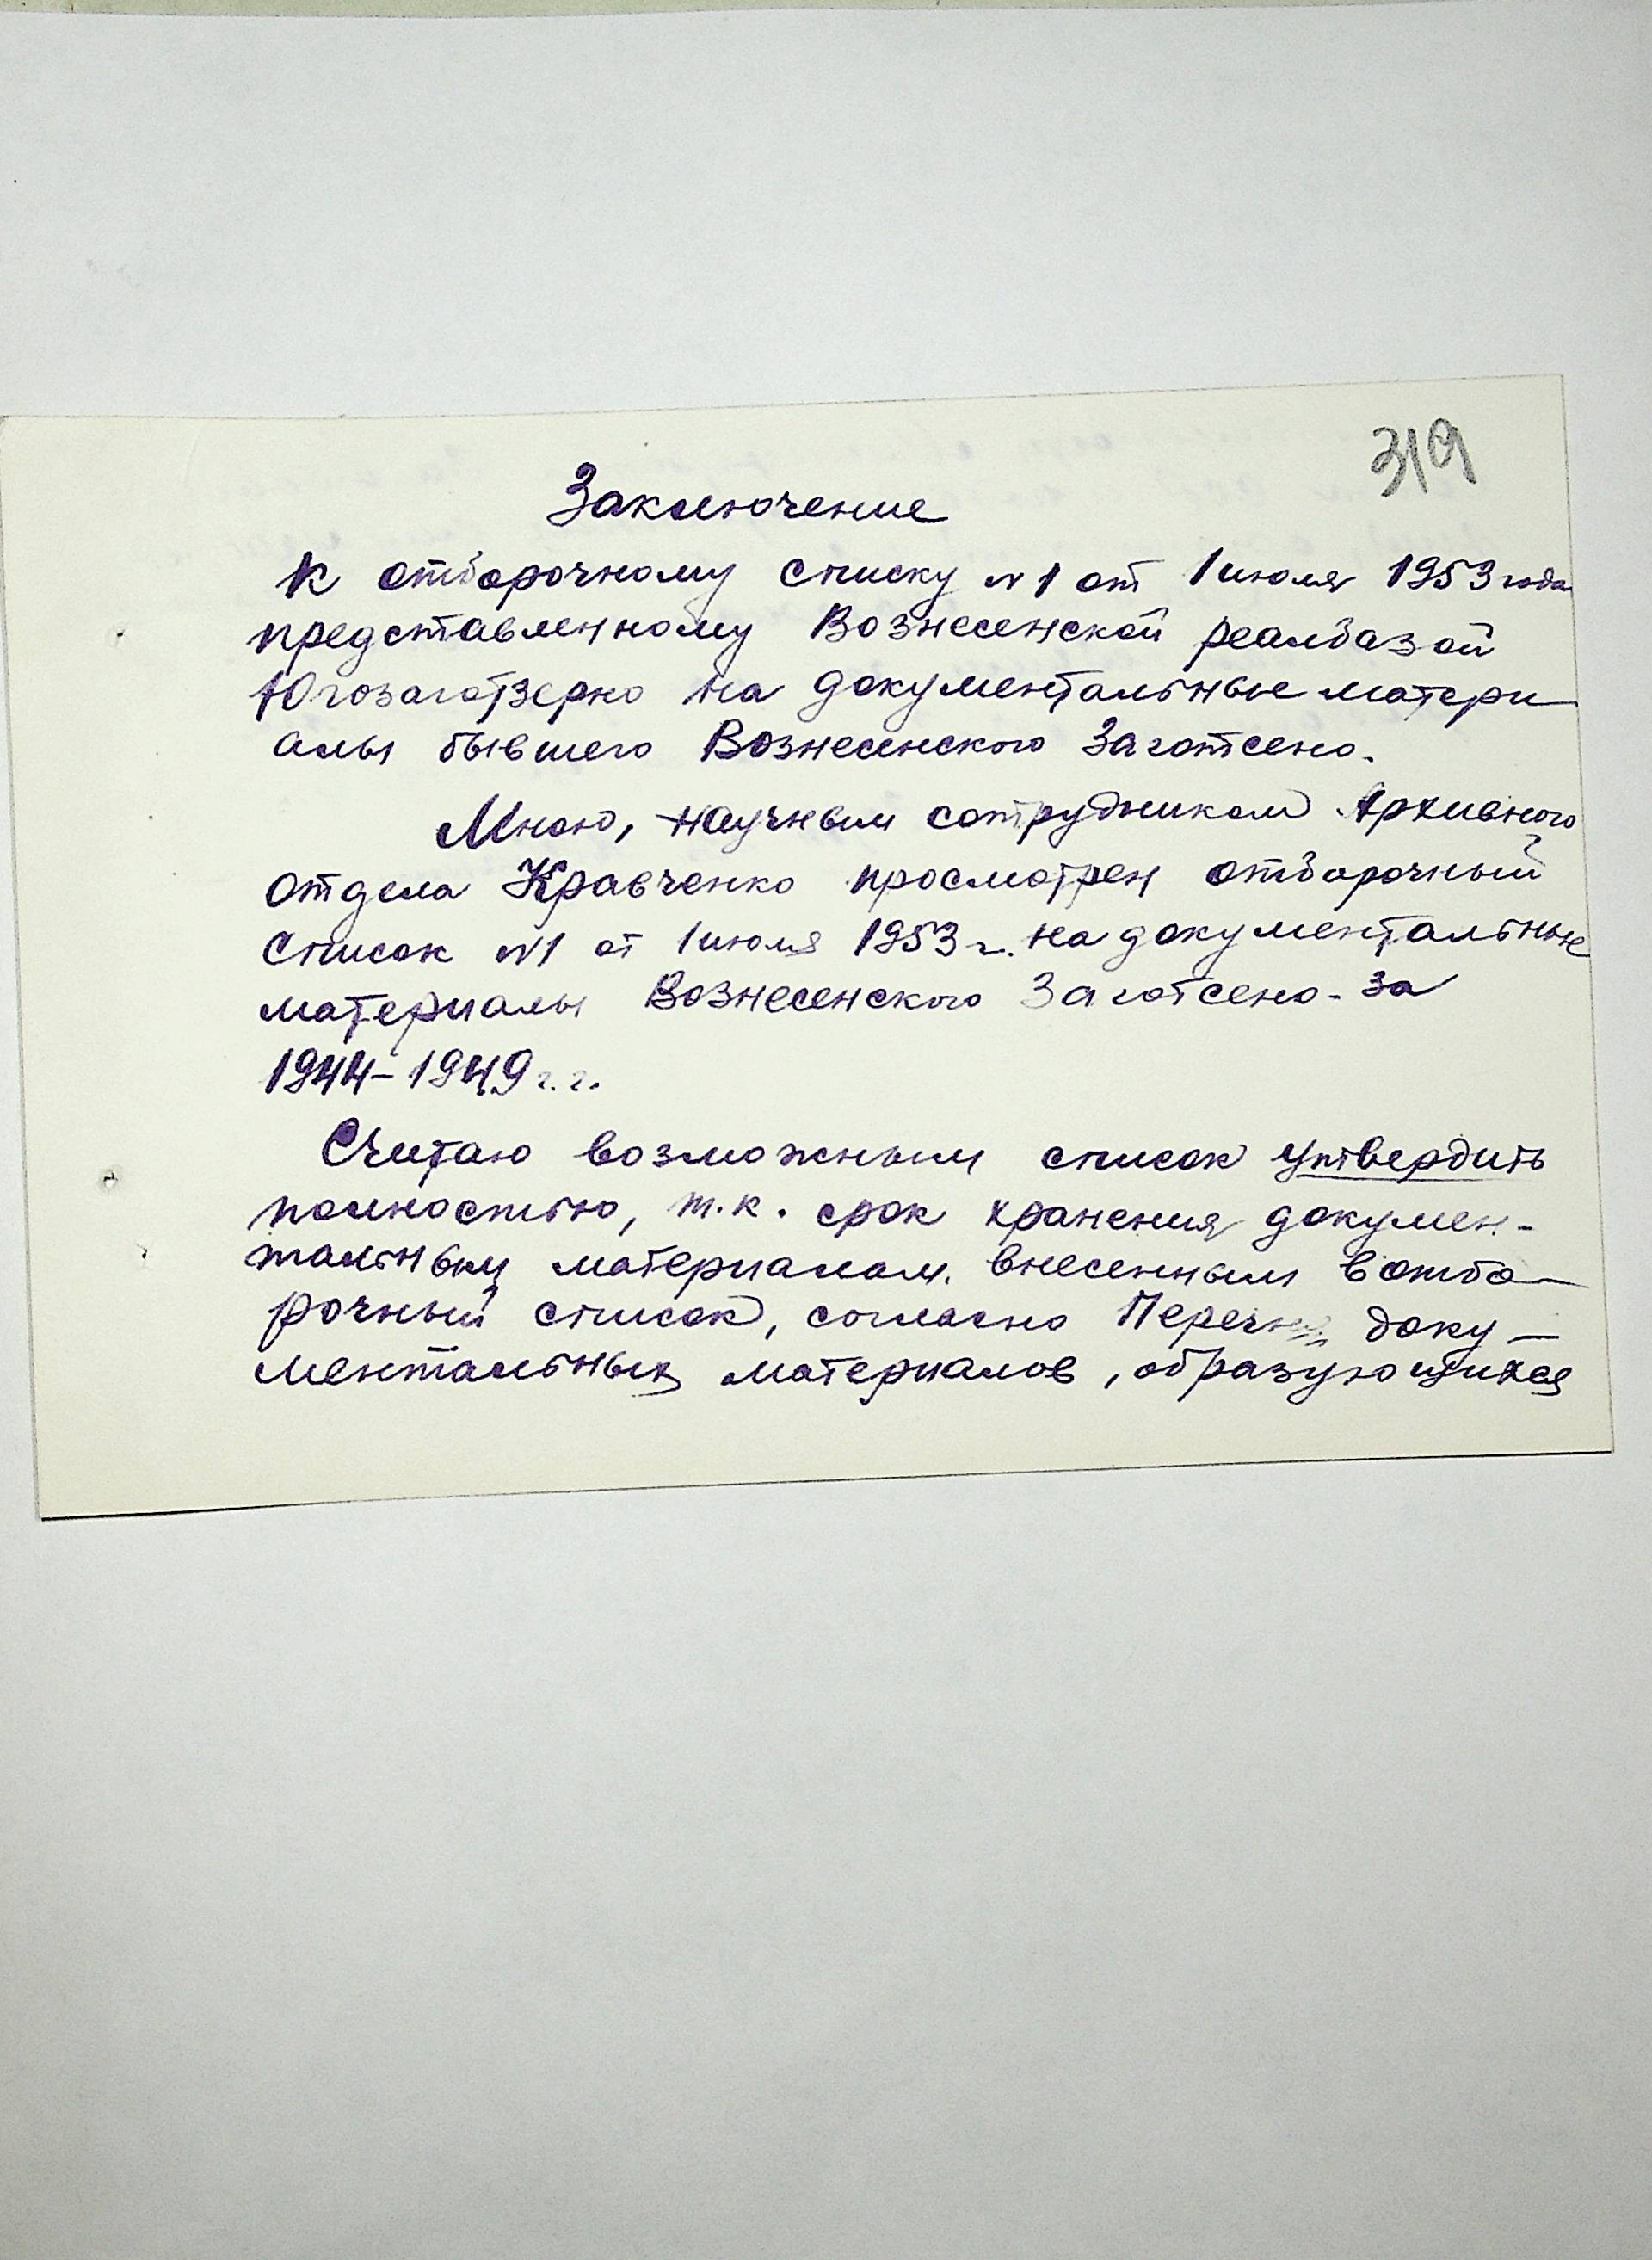 319
Заключение
к отборочному списку №1 от 1 июля 1953 года
представленному Вознесенской реалбазой
Югозаготзерно на документальные матери
алы бывшего Вознесенского Заготсено.
Мною, научным сотрудником Архивного
отдела Кравченко просмотрен отборочный
список №1 от 1 июля 1953 г. на документальные
материалы Вознесенского Заготсено - за
1944-1949 г.г.
Считаю возможным список утвердить
полностью, т.к. срок хранения докумен-
тальным материалам. внесенным в отбо-
рочный список, согласно Перечня доку-
ментальных материалов, образующихся